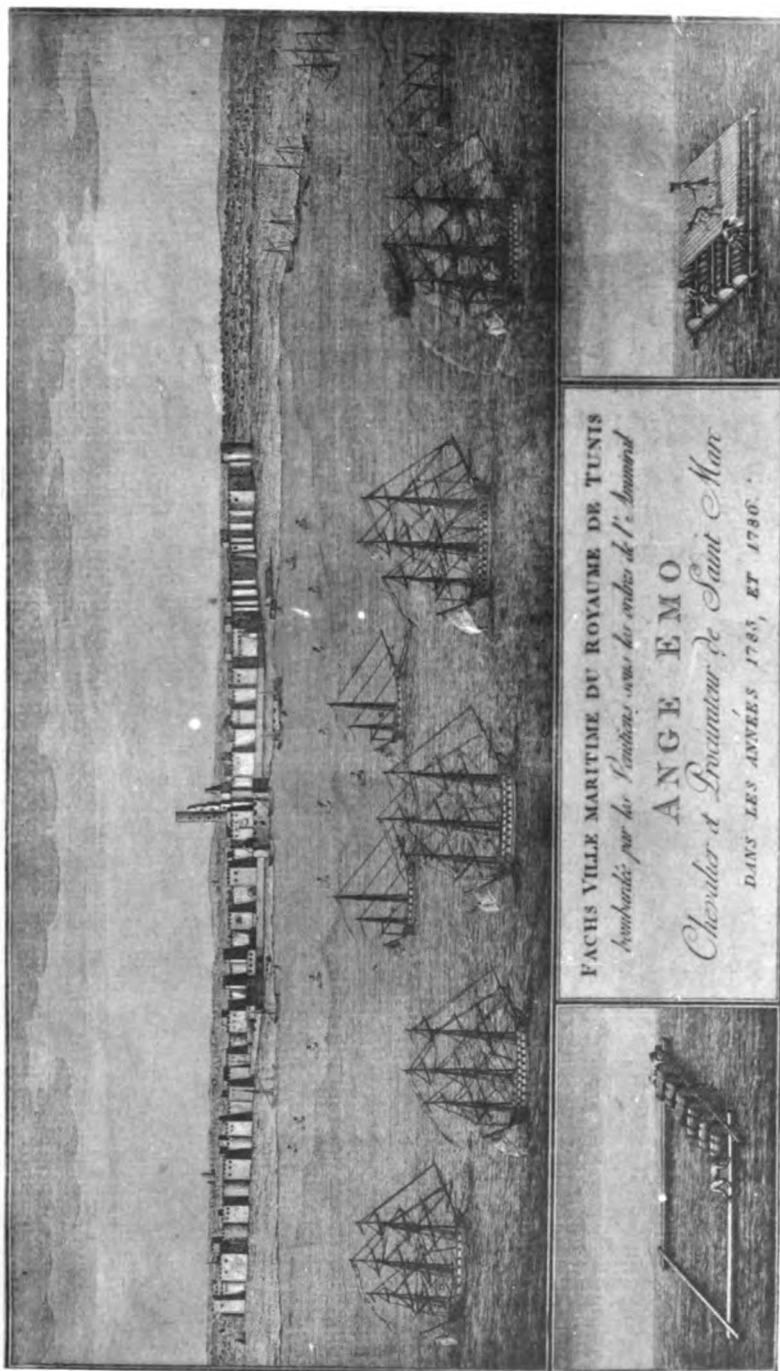 FACHS VILLE MARITIME DU ROYAUME DE TUNIS
bombardée par les Vénitiens sous les ordres de l'Ammiral
ANGE EMO
Chevalier et Procurateur de Saint Marc
DANS LES ANNÉES 1785, ET 1786.